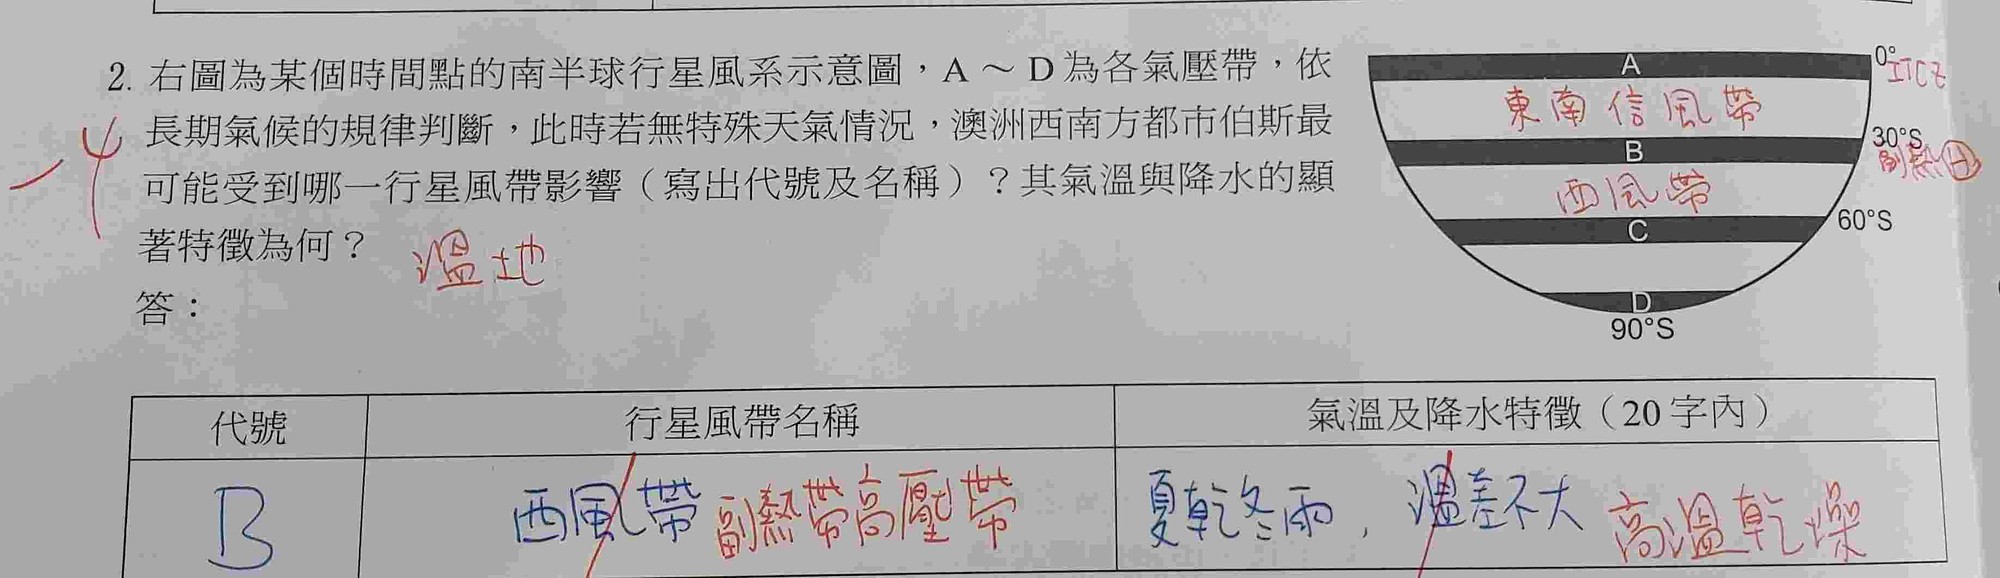 2. 右圖為某個時間點的南半球行星風系示意圖，A～D為各氣壓帶，依
長期氣候的規律判斷，此時若無特殊天氣情況，澳洲西南方都市伯斯最
可能受到哪一行星風帶影響（寫出代號及名稱）？其氣溫與降水的顯
著特徵為何？
溫地
答：
-4
A
0°
ITCZ
東南信風帶
B
30°S
副熱㊐
西風帶
C
60°S
D
90°S
代號 行星風帶名稱 氣溫及降水特徵（20字內）
B 西風帶 副熱帶高壓帶 夏乾冬雨，溫差不大 高溫乾燥